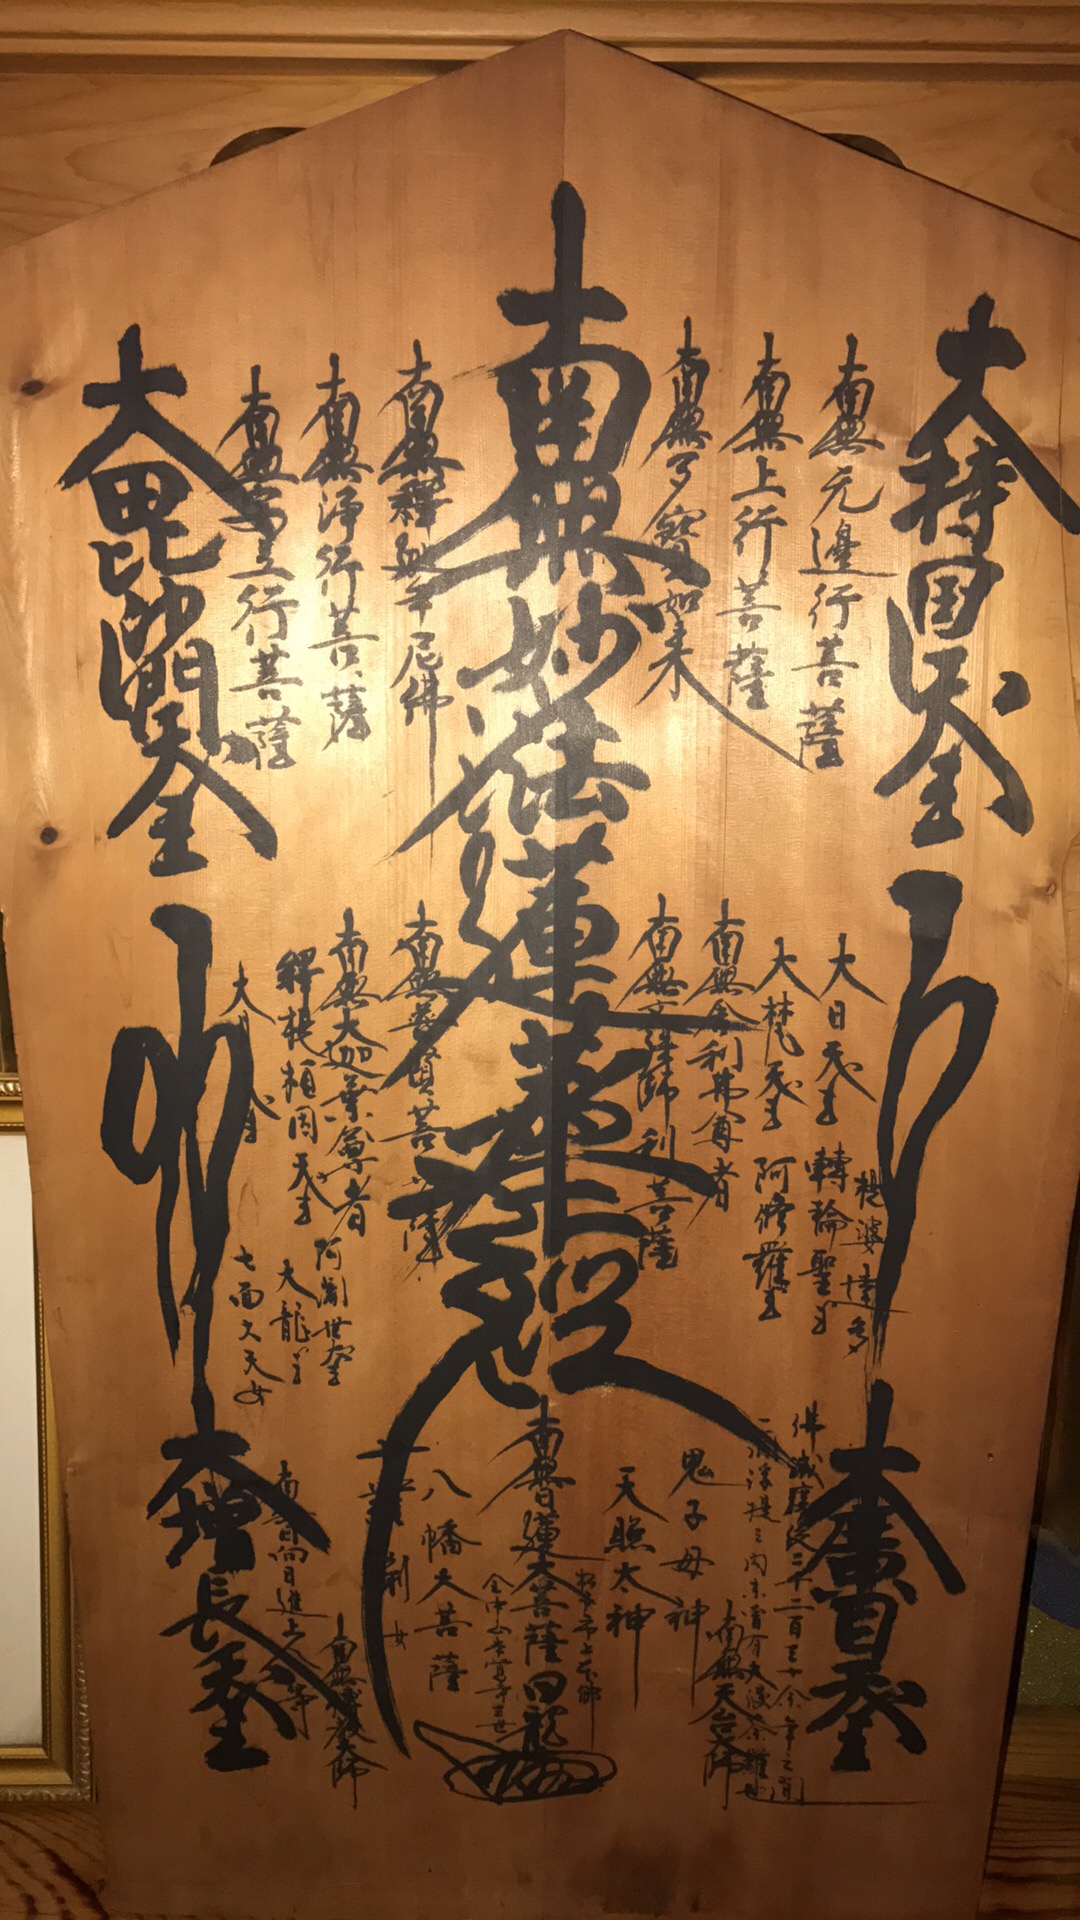 大持国天王
南無无邊行菩薩
南無上行菩薩
南無多寳如来
南無妙法蓮華経
南無釋迦牟尼佛
南無浄行菩薩
南無安立行菩薩
大毘沙門天王
大日天王
轉輪聖王
提婆達多
大梵天王
阿修羅王
南無舎利弗尊者
南無文殊師利菩薩
南無普賢菩薩
南無大迦葉尊者
阿闍世王
釋提桓因天王
大龍王
大月天王
七面大天女
大廣目天王
佛滅度後二千二百三十余年之間
一閻浮提之内未曽有大漫荼羅也
南無天台大師
鬼子母神
天照太神
南無日蓮大菩薩
日龍
八幡大菩薩
十羅刹女
南無傳教大師
大増長天王